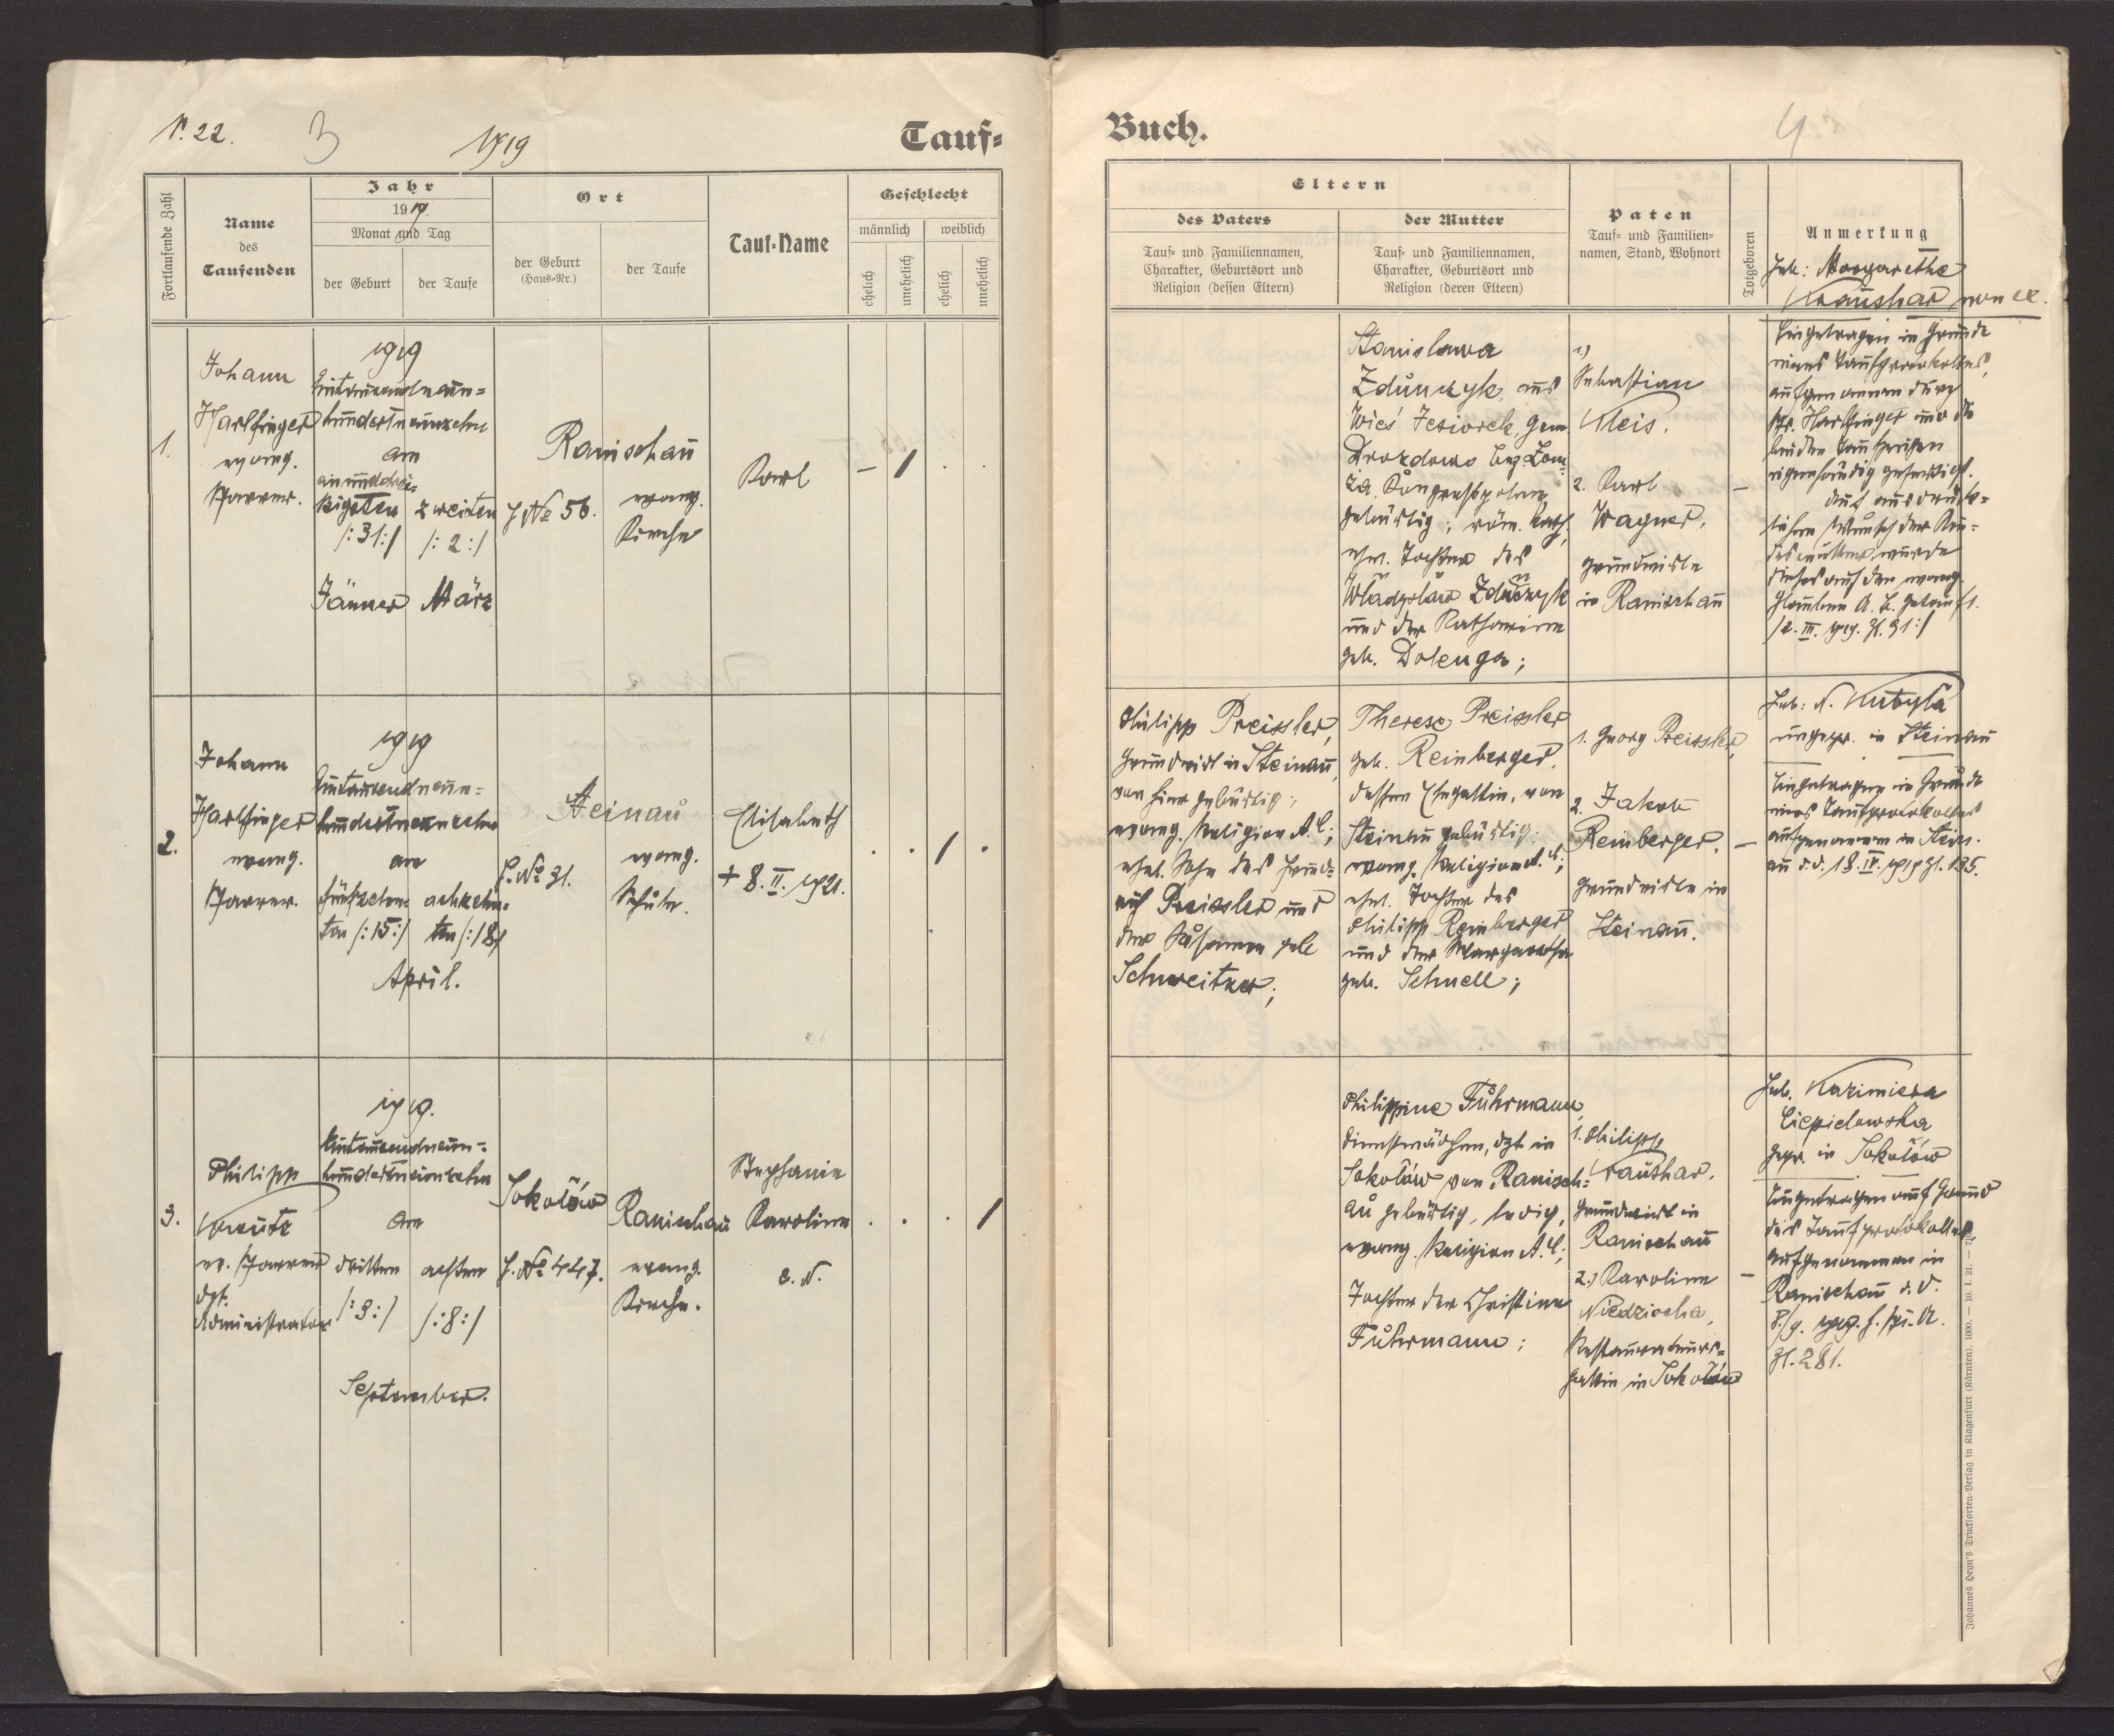 P. 22.
3
1919
Tauf-
Fortlaufende Zahl
Name
des
Taufenden
Jahr
1919.
Monat und Tag
der Geburt
der Taufe
Ort
der Geburt
(Haus-Nr.)
der Taufe
Tauf-Name
Geschlecht
männlich
weiblich
ehelich
unehelich
ehelich
unehelich
1.
Johann
Harlfinger
evang.
Pfarrer.
1919
Eintausendneun=
hundertneunzehn
am
einunddrei=
ßigsten
/:31:/
Jänner
zweiten
/:2:/
März
Ranischau
H No 56.
evang.
Kirche
Karl
2.
Johann
Harlfinger
evang.
Pfarrer.
1919
Eintausendneun=
hundertneunzehn
am
fünfzehn
ten /:15:/
achzehn=
ten /:18:/
April.
Steinau
H. No 31.
evang.
Schule.
Elisabeth
+ 8. II. 1921.
3.
Philipp
Kreutz
ev. Pfarrer
dzt.
Administrator
1919.
Eintausendneun=
hundertneunzehn
am
dritten
/:3:/
achten
/:8:/
September.
Sokołów
H. No 447.
Ranischau
evang.
Kirche.
Stephanie
Karoline
Buch.
4
Eltern
des Vaters
Tauf- und Familiennamen,
Charakter, Geburtsort und
Religion (dessen Eltern)
der Mutter
Tauf- und Familiennamen,
Charakter, Geburtsort und
Religion (deren Eltern)
Paten
Tauf- und Familien-
namen, Stand, Wohnort
Totgeboren
Anmerkung
Heb: Margarethe
Kraushar
Stanislawa
Zdunczyk, aus
Wieś Jesiorek, Gem
Drozdowo Bez. Lom=
za, Kongresspolen,
gebürtig; röm. kath.
ehel. Tochter des
Wladyslaw Zdunczyk
und der Katharina
geb. Dolenga;
1.)
Sebastian
Kleis.
2. Karl
Wagner,
Grundwirte
in Ranischau
Eingetragen in Grunde
eines Taufprotokolles,
aufgenommen durch
Pfr. Harlfinger und die
beiden Taufzeugen
eigenhändig gefertigt.
Auf ausdrück=
lichen Wunsch der Kin=
desmutter wurde
dieses auf den evang.
Glauben A. B. getauft.
/2. III. 1919. Zl. 91:/
Philipp Preissler,
Grundwirt in Steinau,
von hier gebürtig;
evang. Religion A.B.;
ehel. Sohn des Hein=
rich Preissler und
der Susanna geb
Schweitzer;
Therese Preissler
geb. Reinberger,
dessen Ehegattin, von
Steinau gebürtig;
evang. Religion A.B.;
ehel. Tochter des
Philipp Reinberger
und der Margaretha
geb. Schnell;
1. Georg Preissler,
2. Jakob
Reinberger.
Grundwirte in
Steinau.
Heb: N. Kubyła
ungepr. in Steinau
Eingetragen in Grunde
eines Taufprotokolles
aufgenommen in Stein=
au d.d. 18. IV. 1919 Zl. 135.
Philippine Führmann,
Dienstmädchen, dzt in
Sokołów von Ranisch=
au gebürtig, ledig,
evang. Religion A.B.;
Tochter der Christine
Führmann;
1. Philipp
Kraushar,
Grundwirt in
Ranischau
2.) Karoline
Niedziocha,
Restaurateurs=
gattin in Sokołów
Heb. Kazimiera
Ciepielowska
gepr. in Sokołów
Eingetragen auf Grund
des Taufprotokolles,
aufgenommen in
Ranischau d.d.
8./9. 1919.
Zl. 281.
Johannes Heyn's Drucksorten-Verlag in Klagenfurt (Kärnten). 1000. — 10. I. 21. —